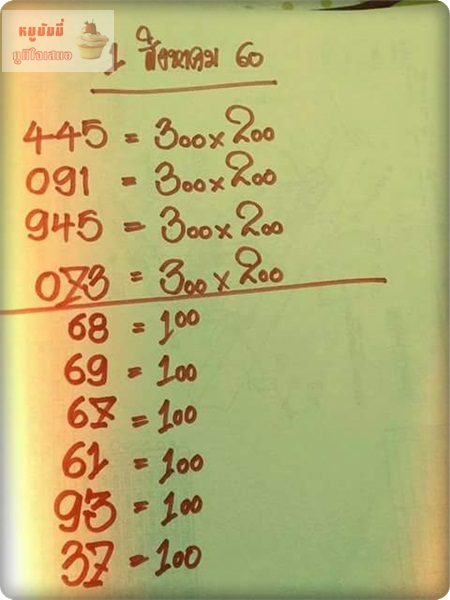 หมูบัมมี่
มูมีโอเสมอ
1 สิงหาคม 60
445 = 300x200
091 = 300x200
945 = 300x200
073 = 300x200
68 = 100
69 = 100
67 = 100
61 = 100
93 = 100
37 = 100